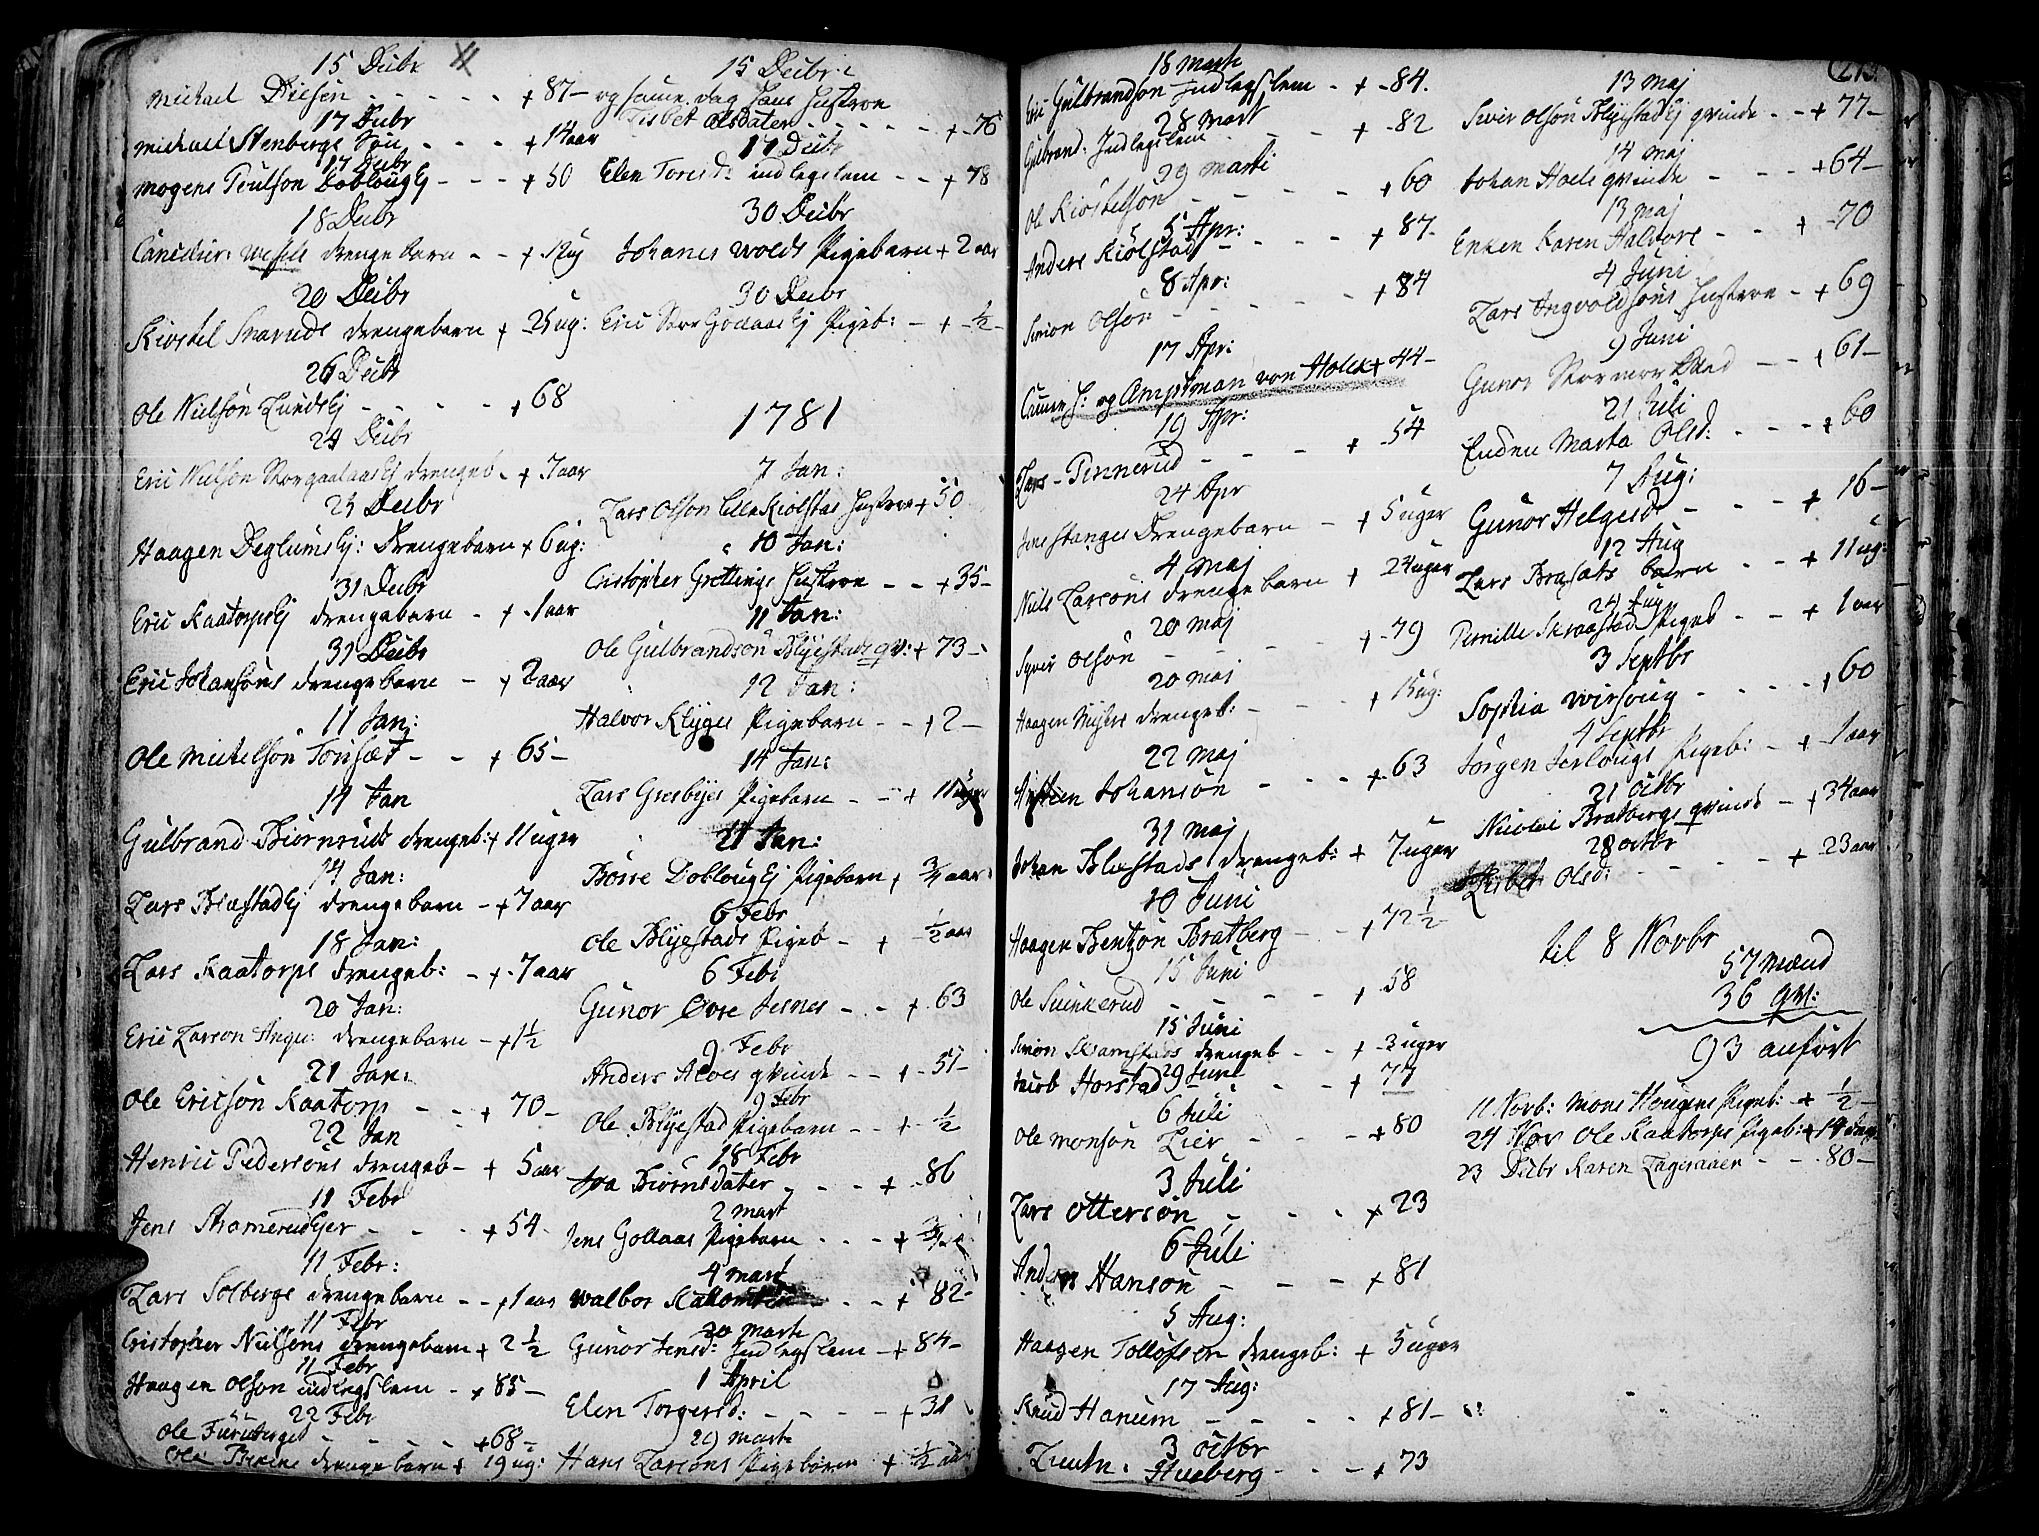 15 Decbr
Michael Diesen - - - - + 87 -
17 Decbr
Michael Stenbergs Søn - - - + 14 aar
17 Decbr
Mogens Poulson Doblougej - - - + 50
18 Decbr
drengebarn - - +
20 Decbr
Kiostel Snaruds drengebarn + 25 ug:
26 Decbr
Ole Nielsøn Lundsej - - - - + 68
24 Decbr
Eric Nielsøn drengeb - + 7 aar
23 Decbr
Haagen Deglumsej: Drengebarn + 6 ug:
31 Decbr
Eric Kaatorpsej drengebarn - + - 1 aar
31 Decbr
Eric Johansøns drengebarn - + 2 aar
11 Jan:
Ole Mickelsøn Tonsæt - - + 65 -
14 Jan
Gulbrand Biørnruds drengeb: + 11 uger
14 Jan:
Lars Blæstadej drengebarn - + 7 aar
18 Jan:
Lars Kaatorps drengeb: - + - 7 aar
20 Jan:
Eric Larson drengebarn - + 1½
21 Jan:
Ole Ericsøn Kaatorp - - + 70 -
22 Jan
Henric Pedersøns drengeb - + 5 aar
11 Febr
Jens - - - + 54 -
11 Febr:
Lars Solbergs drengebarn - - + 1 aar
11 Febr
Cristopher Nielsøns drengebarn + 2½
11 Febr
Haagen Olsøn indlegslem - + 85 -
22 Febr
Ole Furuberget - - - - + 68 -
Ole drengebarn + 19 ug:
15 Decbr:
og samme dag hans Hustroe
Lisbet Olsdater - - - - + - 76
17 Decbr
Elen Toresd: indlegslem - - + 78
30 Decbr
Johanes Wolds Pigebarn + 2 aar
30 Decbr
Eric Store Gollaasej Pigeb: - + - ½ -
1781
7 Jan:
Lars Olson Lille Kiolstad Hustroe + 50
10 Jan:
Cristopher Grettings Hustroe - - + 35 -
11 Jan:
Ole Gulbrandsøn Blystads qv: + 73 -
12 Jan:
Halvor Klyges Pigebarn - - + 2 -
14 Jan:
Lars Gresbyes Pigebarn - - + 11 uger
21 Jan:
Børre Doblougej Pigebarn + ¾ aar
6 Febr
Ole Blyestads Pigeb - + - ½ aar
6 Febr
Gunor Øvre Jesnes - - + 63
9 Febr
Anders Aloes qvinde - - + - 51 -
9 Febr
Ole Blyestad Pigebarn - - + - ½
18 Febr
Biørnsdater - - - + - 86
2 Mart
Jens Gollaas Pigebarn - - - + ¾
4 Mart
Walbor - - + 82 -
20 Marti
Gunor Jensd: Indlegslem - + 84 -
1 April
Elen Torgersd: - - - - + 31
29 Marti
Hans Larsøns Pigebarn + ½ aar
18 Marti
Eric Gulbrandsøn Indlegslem - + - 84.
28 Mart
Gulbrand: Indlegslem - - - + - 82
29 Marti
Ole Kiostelsøn - - - - + 60
5 Apr:
Anders Kiolstad - - - + 87 -
8 Apr:
Simon Olsøn - - - - + 84
17 Apr:
og Amptman von Holck + 44 -
19 Apr:
Lars - Pennerud - - - + - 54
24 Apr
Jens Stanges Drengebarn - + 5 uger
4 Maj
Niels Larsøns drengebarn + 24 uger
20 Maj
Syver Olsøn - - - - + - 79
20 Maj
Haagen drengeb: - - - + 15 ug:
22 Maj
Johansøn - - - - + - 63
31 Maj
Johan Blæstads drengeb: + 7 uger
10 Juni
Haagen Bentzøn Bratberg - - + 72½ -
15 Juni
Ole Svenkerud - - - - + - 58
15 Juni
Simon Skramstads drengeb - - + - 3 uger
29 Juni
Jacob Horstad - - - + 77
6 Juli
Ole Monsøn Lier - - - + 80
3 Juli
Lars Ottersøn - - - + 23
6 Juli
Anders Hansøn - - - + 81
5 Aug:
Haagen Tollofsen drengeb: + 5 uger
17 Aug:
Knud Hanum - - - - + 81 -
3 Octbr
Lieutn: Hueberg - - - + 73
13 Maj
Siver Olsøn Blyestadej qvinde - - + 77 -
14 Maj
Johan Hoels qvinde - - - + 64 -
13 Maj
Enken Karen Halvors - - + - 70
4 Juni
Lars Ingvoldsøns Hustroe - + 69
9 Juni
Gunor - - + 61 -
21 Juli
Enken Marta Olsd: - - - + 60
7 Aug:
Gunor Helgesd - - - + 16 -
12 Aug
Lars barn - - + 11 ug:
24 Aug
Pernille Skraastad Pigeb - - + 1 aar
3 Septbr
Sophia Wirsoug - - - - + 60
4 Septbr
Jørgen Pigeb: - + 1 aar
21 Octbr
Nicolai Bratbergs qvinde - + 34 aar
28 Octbr
Lisbet Olsd: - - - + 23 aar
til 8 Novbr
57 Mænd
36 qv:
93 anført
11 Novb: Mons Hougens Pigeb: + ½ -
24 Nov Ole Kaatorps Pigeb: + 14 dag
23 Decbr Karen - - 80 -